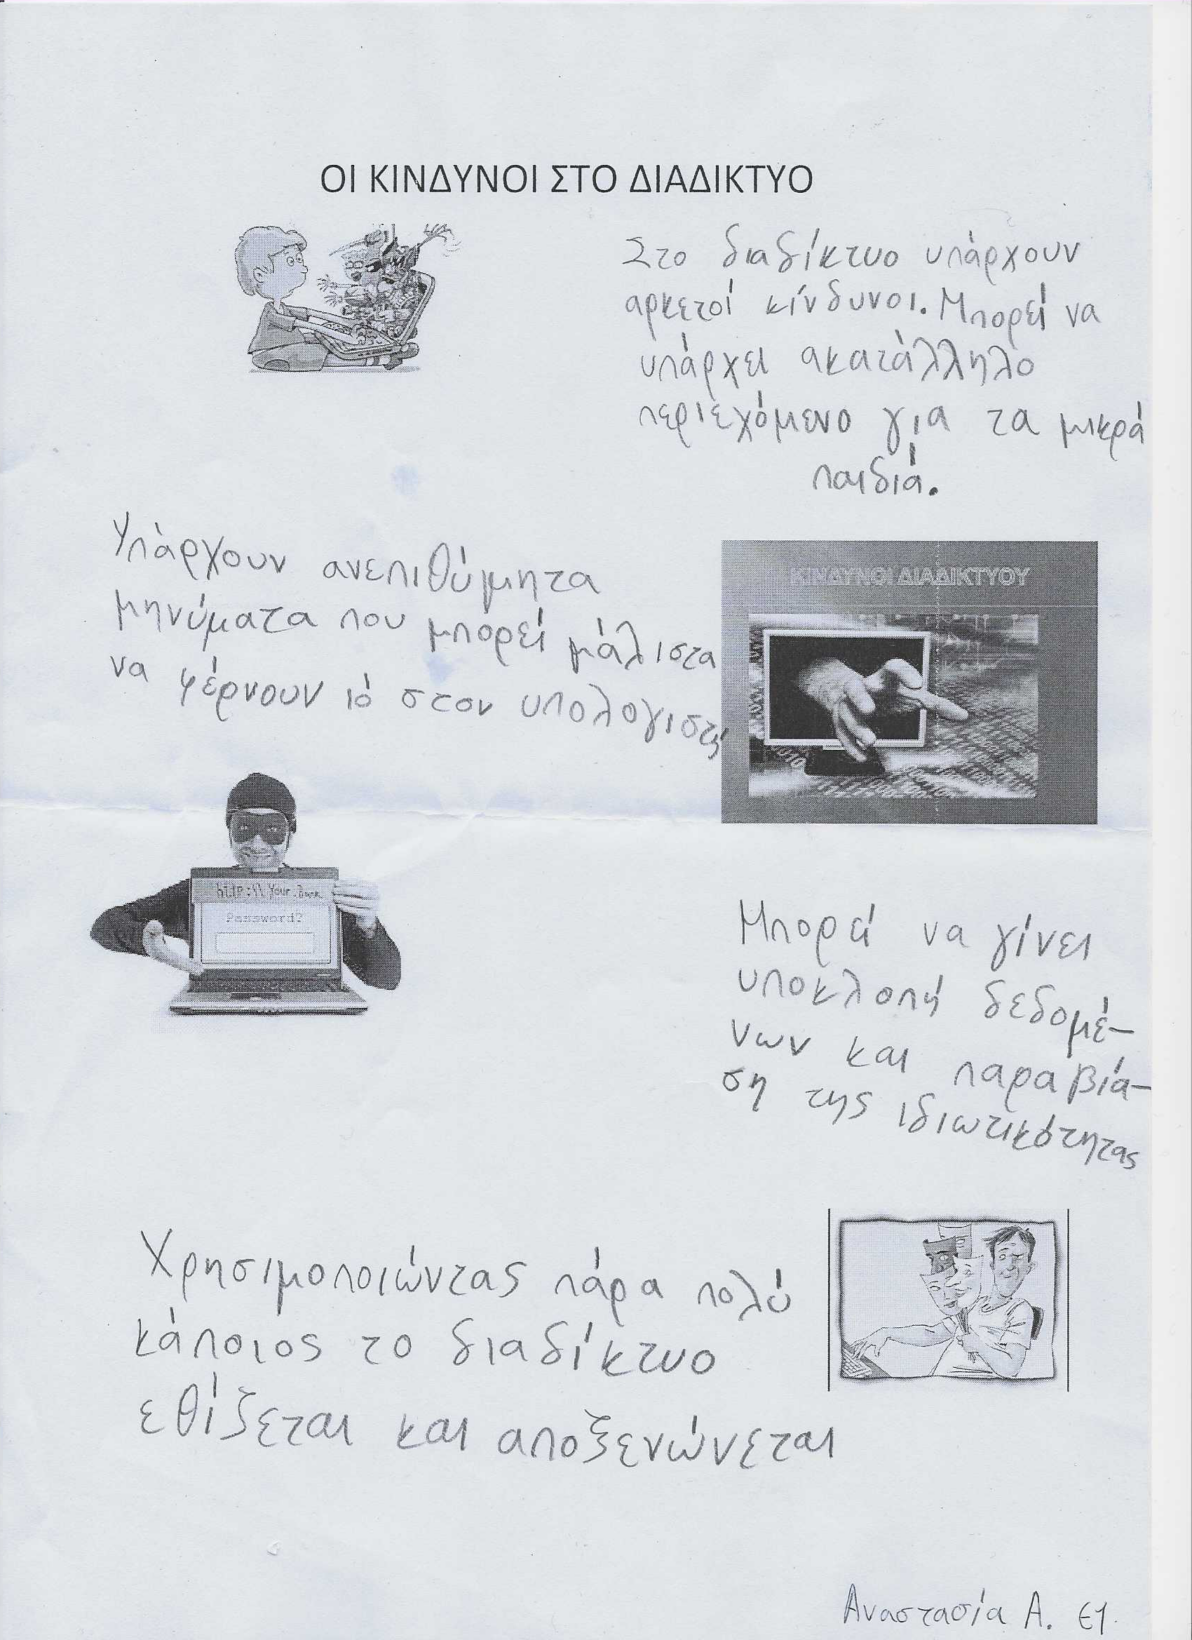 ΟΙ ΚΙΝΔΥΝΟΙ ΣΤΟ ΔΙΑΔΙΚΤΥΟ
Στο διαδίκτυο υπάρχουν
αρκετοί κίνδυνοι. Μπορεί να
υπάρχει ακατάλληλο
περιεχόμενο για τα μικρά
παιδιά.
Υπάρχουν ανεπιθύμητα
μηνύματα που μπορεί μάλιστα
να φέρνουν ιό στον υπολογιστή
ΚΙΝΔΥΝΟΙ ΔΙΑΔΙΚΤΥΟΥ
http:\\Your.Bank
Password?
Μπορεί να γίνει
υποκλοπή δεδομέ-
νων και παραβία-
ση της ιδιωτικότητας
Χρησιμοποιώντας πάρα πολύ
κάποιος το διαδίκτυο
εθίζεται και αποξενώνεται
Αναστασία Α. Ε1